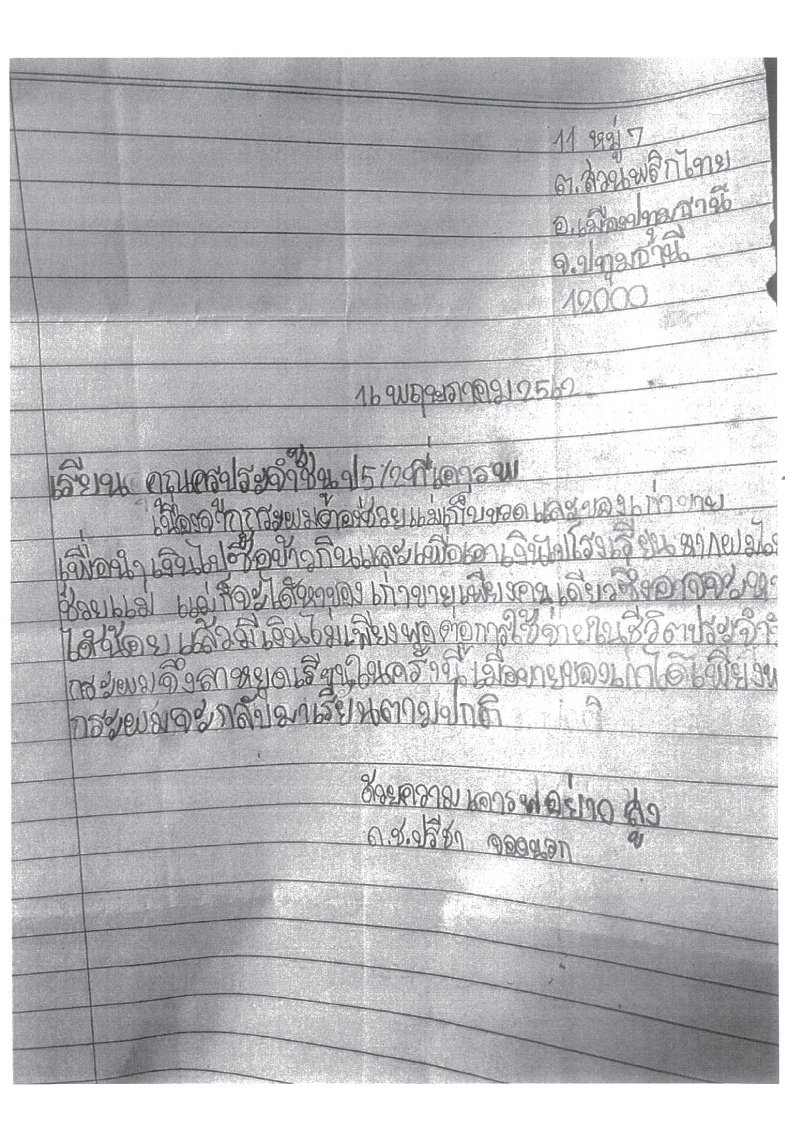 11 หมู่ 7
ต.ส่วนพลิกไทย
อ.เมืองปทุมธานี
จ.ปทุมธานี
12000
16 พฤษภาคม 2562
เรียน คุณครูประจำชั้น ป5/2 ที่เคารพ
เนื่องจากกระผมต้องช่วยแม่เก็บขวดและของเก่าขาย
เพื่อนำเงินไปซื้อข้าวกินและเพื่อเอาเงินไปโรงเรียน หากผมไม่
ช่วยแม่ แม่ก็จะได้หาของเก่าขายเพียงคนเดียวซึ่งอาจจะ
ได้น้อย แล้วมีเงินไม่เพียงพอต่อการใช้จ่ายในชีวิตประจำ
กระผมจึงลาหยุดเรียนในครั้งนี้ เมื่อขายของเก่าได้เพียง
กระผมจะกลับมาเรียนตามปกติ
ด้วยความเคารพอย่าง สูง
ด.ช.ปรีชา